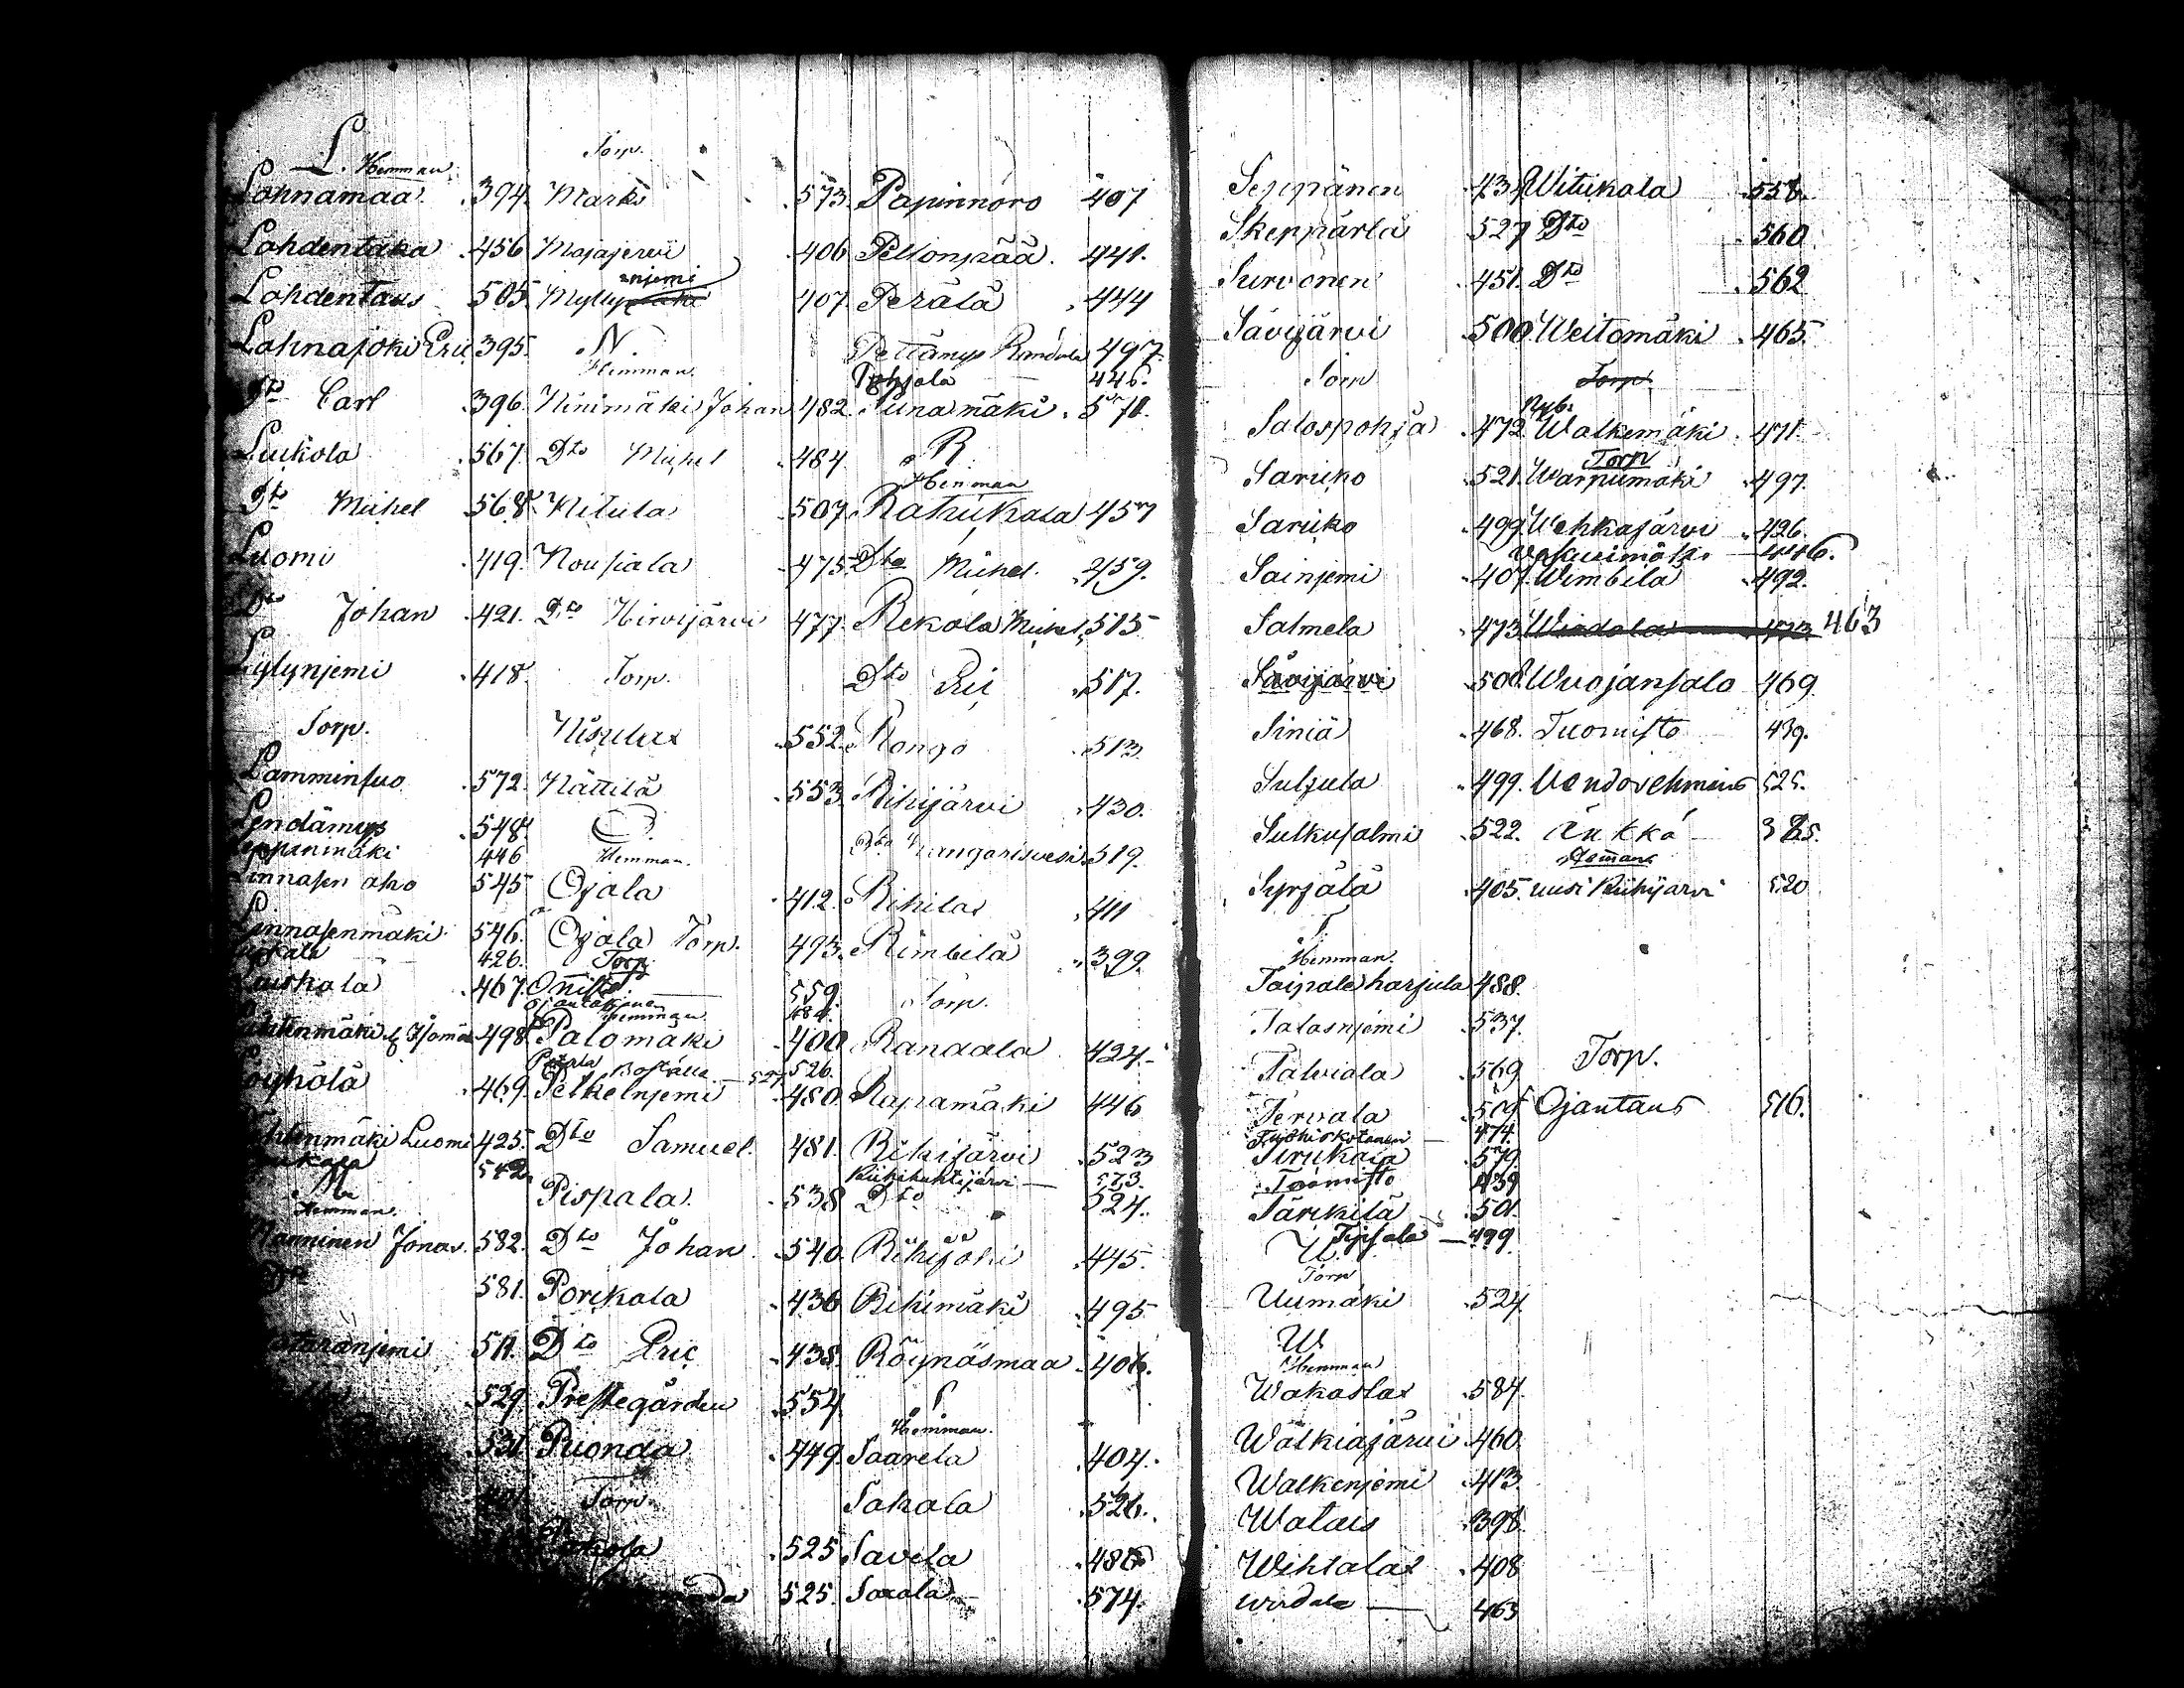 L.
Hemman
Lohnamaa. 394.
Lahdentaka 456
Lahdentaus 505.
Lohnajoki Eric 395.
Dto Carl 396.
Luikola 567.
Dto Michel 568.
Luomi 419.
Dto Johan 421.
Lylynjemi 418.
Torp.
Lamminsuo 572.
Lendämys 548.
446
Linnasen aho 545
Linnasenmäki 546.
426.
467.
498.
469.
Luomi 425.
542
M.
Hemman.
Manninen Jonas. 582.
581.
511.
529.
531.
Torp.
Marks 573.
Majajerwi 406
Myllynjemi 407.
N.
Hemman.
Ninimäki Johan 482.
Dto Michel 484
Nitula 507.
Nousiala 475.
Dto Hirvijärvi 477.
Torp.
Nisula 552.
Nättilä 553.
O.
Hemman.
Ojala 412.
Ojala Torp. 493.
Torp
Onnila 559.
Hemman 484.
Palomäki 400
526.
Petkelnjemi 480.
Dto Samuel. 481.
Pispala. 538
Dto Johan. 540.
Porikala 436
Dto Eric 438.
Prestegården 554.
Puonda 449.
Torp.
525
525.
Papinnoro 407
Peltonpää. 441.
Perälä 444
Pettämys Randala 497.
Pohjala 446.
Piunamäki 571.
R.
Hemman
Rahikala 457
Dto Michel. 459.
Rekola Michel 515
Dto Eric 517.
Rongo 513
Rihijärvi 430.
Dto Kangarisvesi 519.
Rihila 411
Rimbilä 399.
Torp.
Randala 424.
Rapamäki 446
Rihijärvi 523
523.
Dto 524.
Rihijoki 445.
Rihimäki 495
Röynäsmaa 406.
S
Hemman.
Saarela 404.
Sahala 526.
Savela 486
Saxala 574.
Seppänen 431.
Skeppärlä 527
Survonen 451.
Sävijärvi 500
Torp
Salospohja 472
Sariko 521.
Sariko 499
Sainjemi 407.
Salmela 473
Sävijärvi 500.
Siniä 468.
Suljula 499.
Sulkusalmi 522.
Syrjälä 405.
T
Hemman.
Taipale harjula 488.
Talasnjemi 537.
Talviala 569
Tervala 509
474.
Tirikala 579
Toomisto 439
Tärikilä 501.
Tipsala 499.
U.
Torp
Uumäki 524
W
Hemman
Wakasla 584.
Wälkiäjärvi 460.
Walkenjemi 413.
Watais 398.
Wihtala 408
Wirdala 463
Witikala 558.
Dto 560
Dto 562
Weitomäki 465.
Torp
Nyb.
Walkemäki 471.
Torp
Warpumäki 497.
Wehkajärvi 426.
446.
Wimbila 492.
Wirdala 473 463
Wuojansalo 469.
Tuomisto 439.
525.
Äikkä 385.
Hemman
uusi Riihijärvi 520
Torp.
Ojantaus 516.